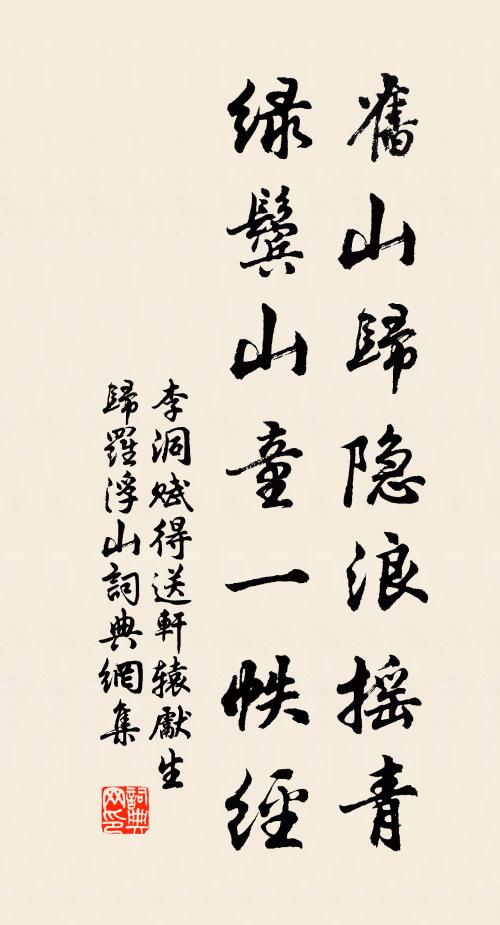 舊山歸隐浪摇青
绿鬓山童一帙經
李洞赋得送軒辕獻生
歸羅浮山詞典網集
詞典网印